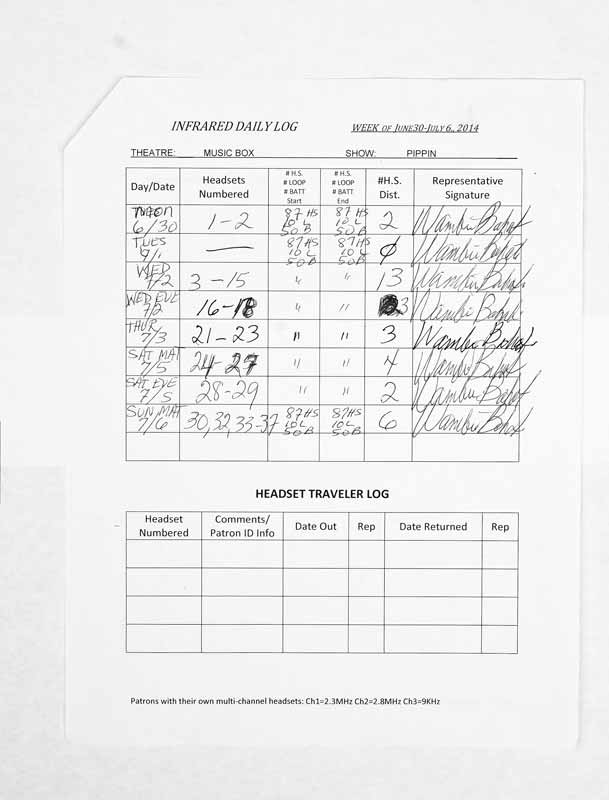 INFRARED DAILY LOG WEEK OF JUNE30-JULY 6, 2014
THEATRE: MUSIC BOX SHOW: PIPPIN
Day/Date Headsets Numbered # H.S. # LOOP # BATT Start # H.S. # LOOP # BATT End #H.S. Dist. Representative Signature
MON 6/30 1-2 87 HS 10 L 50 B 87 HS 10 L 50 B 2
TUES — 87HS 10 L 50B 87HS 10 L 50B ϕ
WED 7/2 3-15 " " 13
WED EVE 7/2 16-18 " " 3
THUR 7/3 21-23 " " 3
SAT MAT 7/5 24-27 " " 4
SAT EVE 7/5 28-29 " " 2
SUN MAT 7/6 30,32,33-37 87HS 10L 50B 87HS 10L 50B 6
HEADSET TRAVELER LOG
Headset Numbered Comments/ Patron ID Info Date Out Rep Date Returned Rep
Patrons with their own multi-channel headsets: Ch1=2.3MHz Ch2=2.8MHz Ch3=9KHz